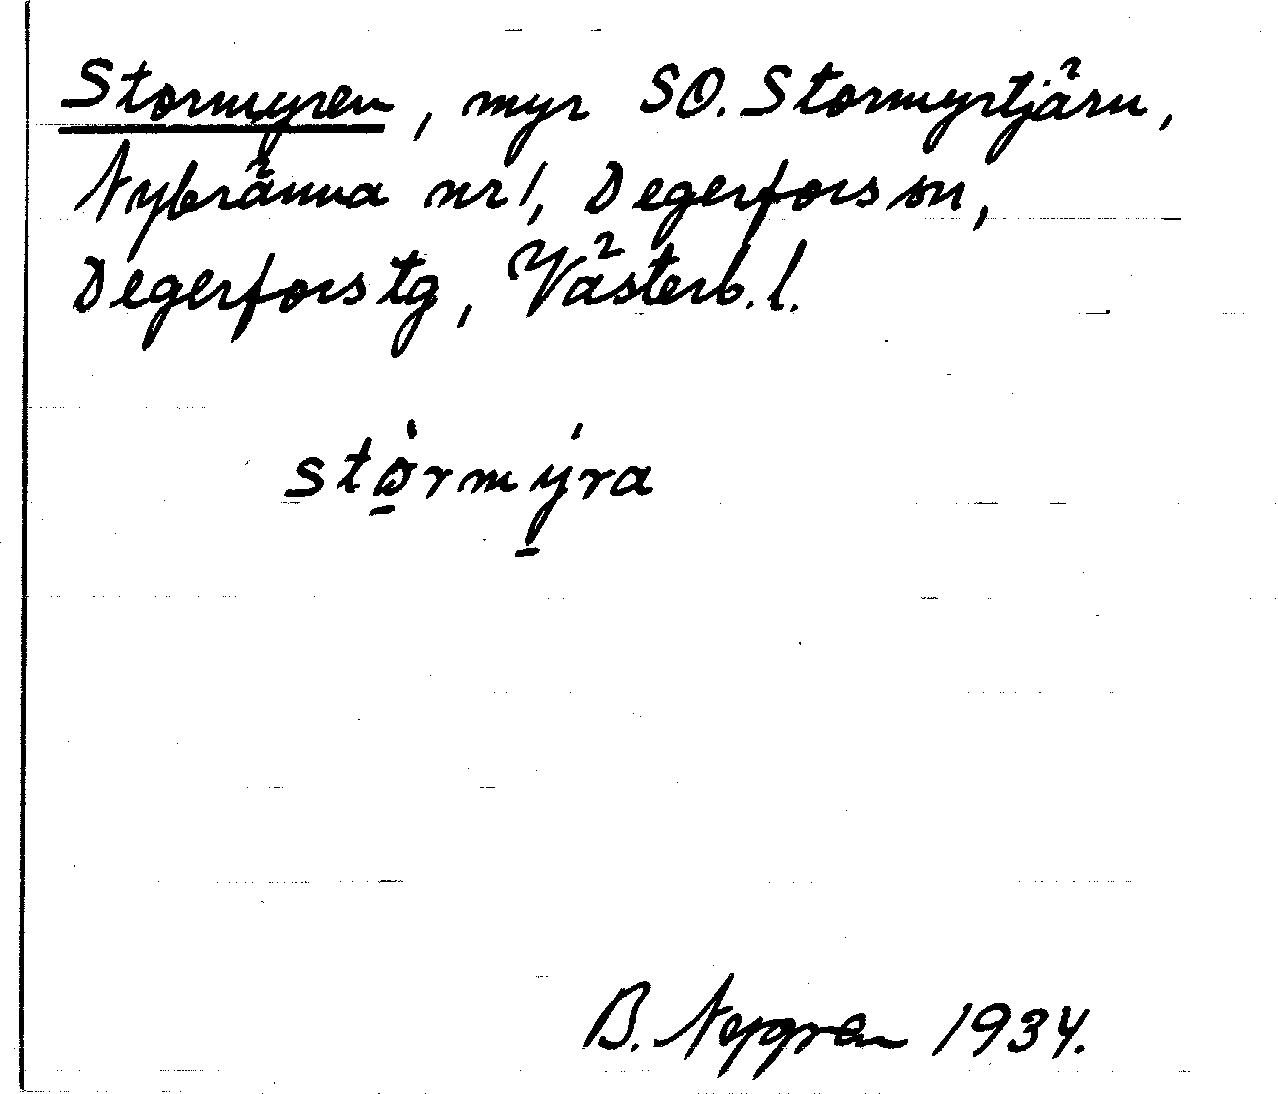 Stormyren, myr SO. Stormyrtjärn,
Nybränna nr 1, Degerfors sn,
Degerfors tg, Västerb. l.
stø̠̀rmý̠ra
B. 1934.